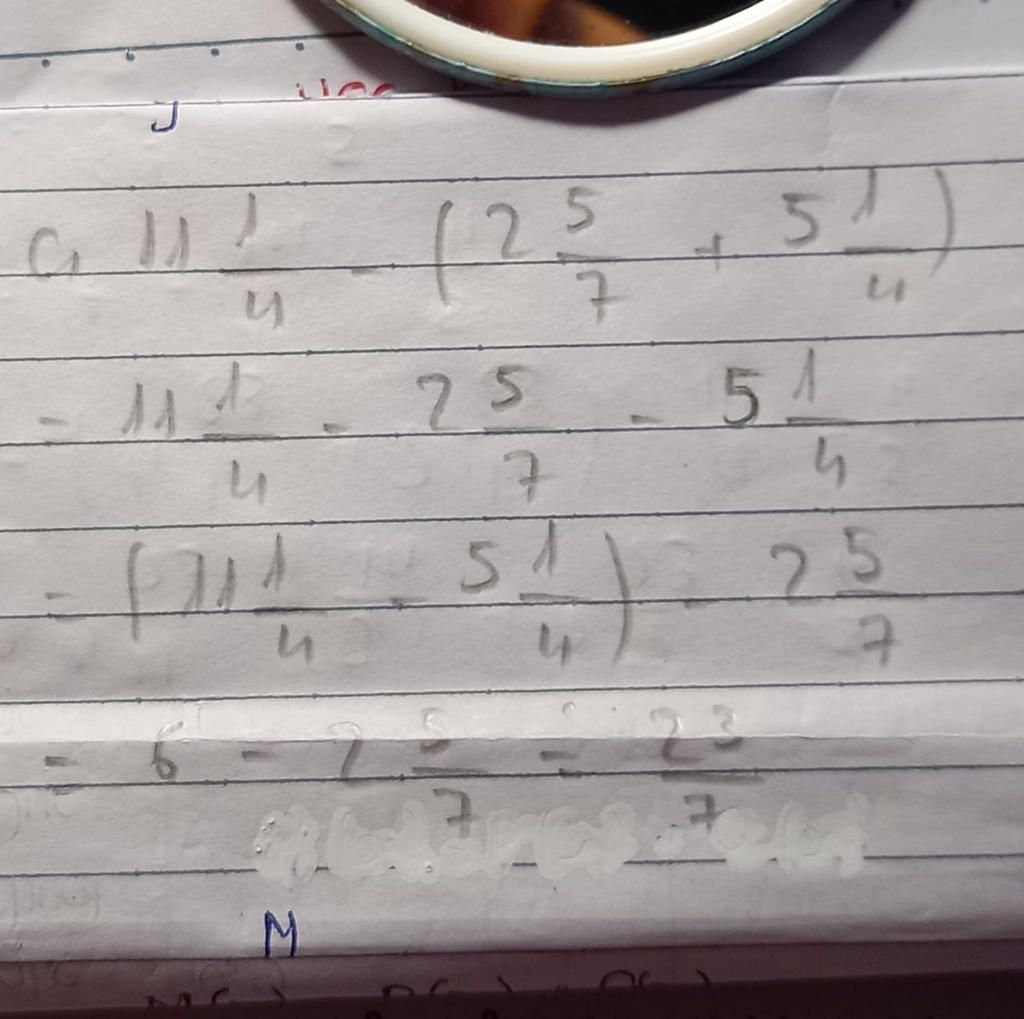 J
C, 11 1/4 - (2 5/7 + 5 1/4)
= 11 1/4 - 2 5/7 - 5 1/4
= (11 1/4 - 5 1/4) - 2 5/7
= 6 - 2 5/7 = 23/7
M